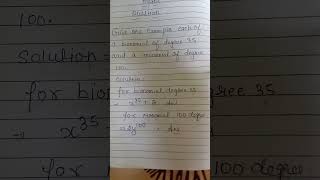 Question
Give one example each of
a binomial of degree 35
and a monomial of degree
100.
Solution:
for binomial degree 35
for monomial 100 degree
= 2y¹⁰⁰ = Ans
100.
Solution =
for bion
degree 35
→ x³⁵
for
100 degree